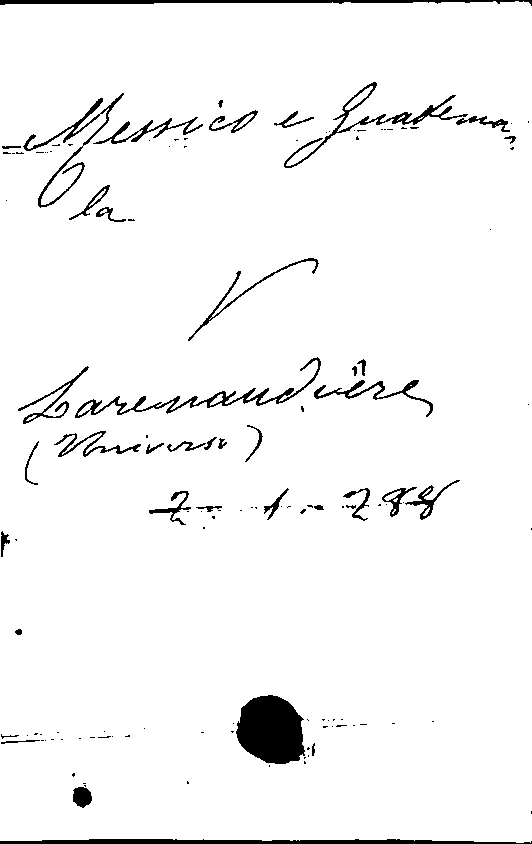 Messico e Guatema
la
V
Larenaudière
(Universo)
2 - 1 - 288